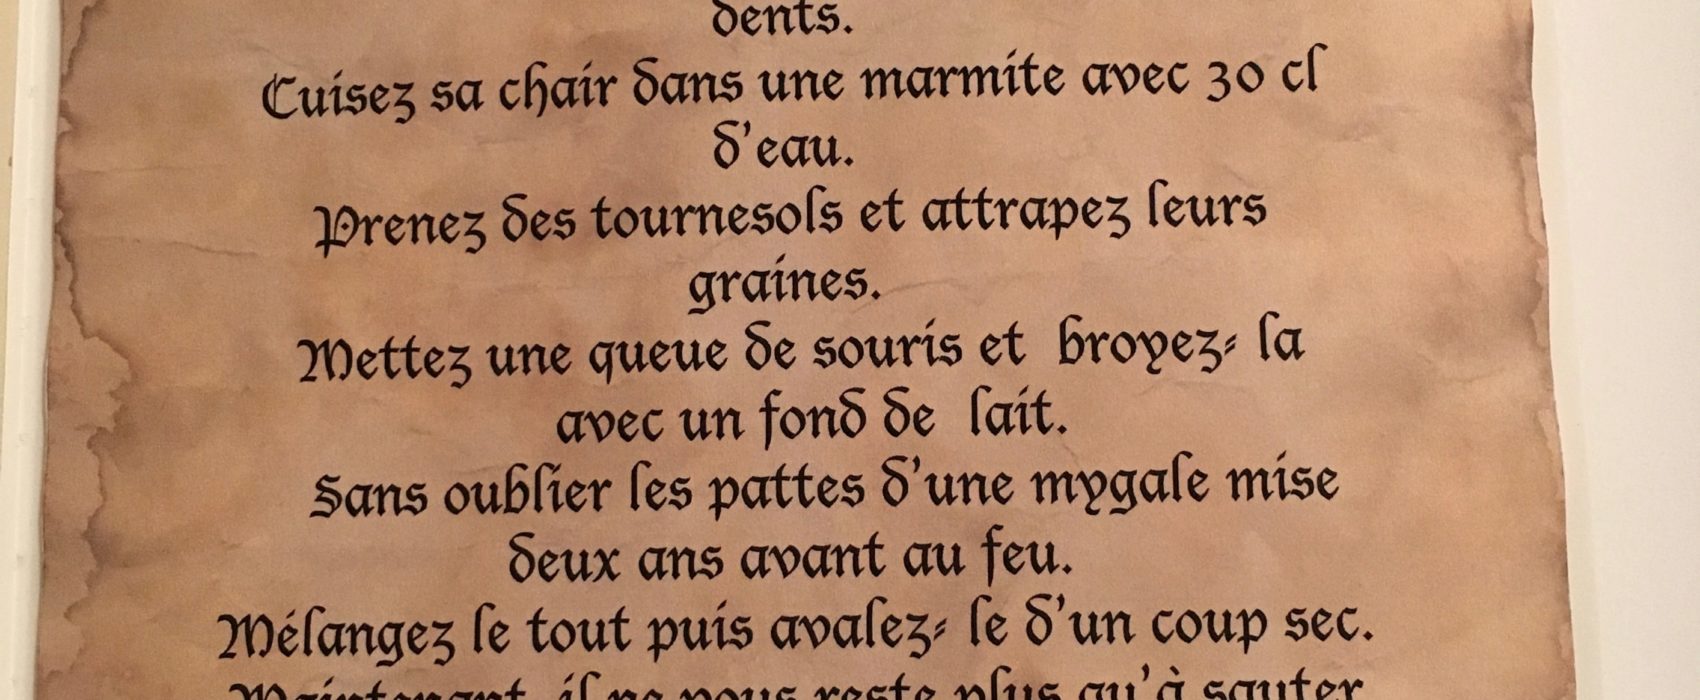 dents.
Cuisez sa chair dans une marmite avec 30 cl
d'eau.
Prenez des tournesols et attrapez leurs
graines.
Mettez une queue de souris et broyez- la
avec un fond de lait.
Sans oublier les pattes d'une mygale mise
deux ans avant au feu.
Mélangez le tout puis avalez- le d'un coup sec.
Maintenant, il ne vous reste plus qu'à sauter